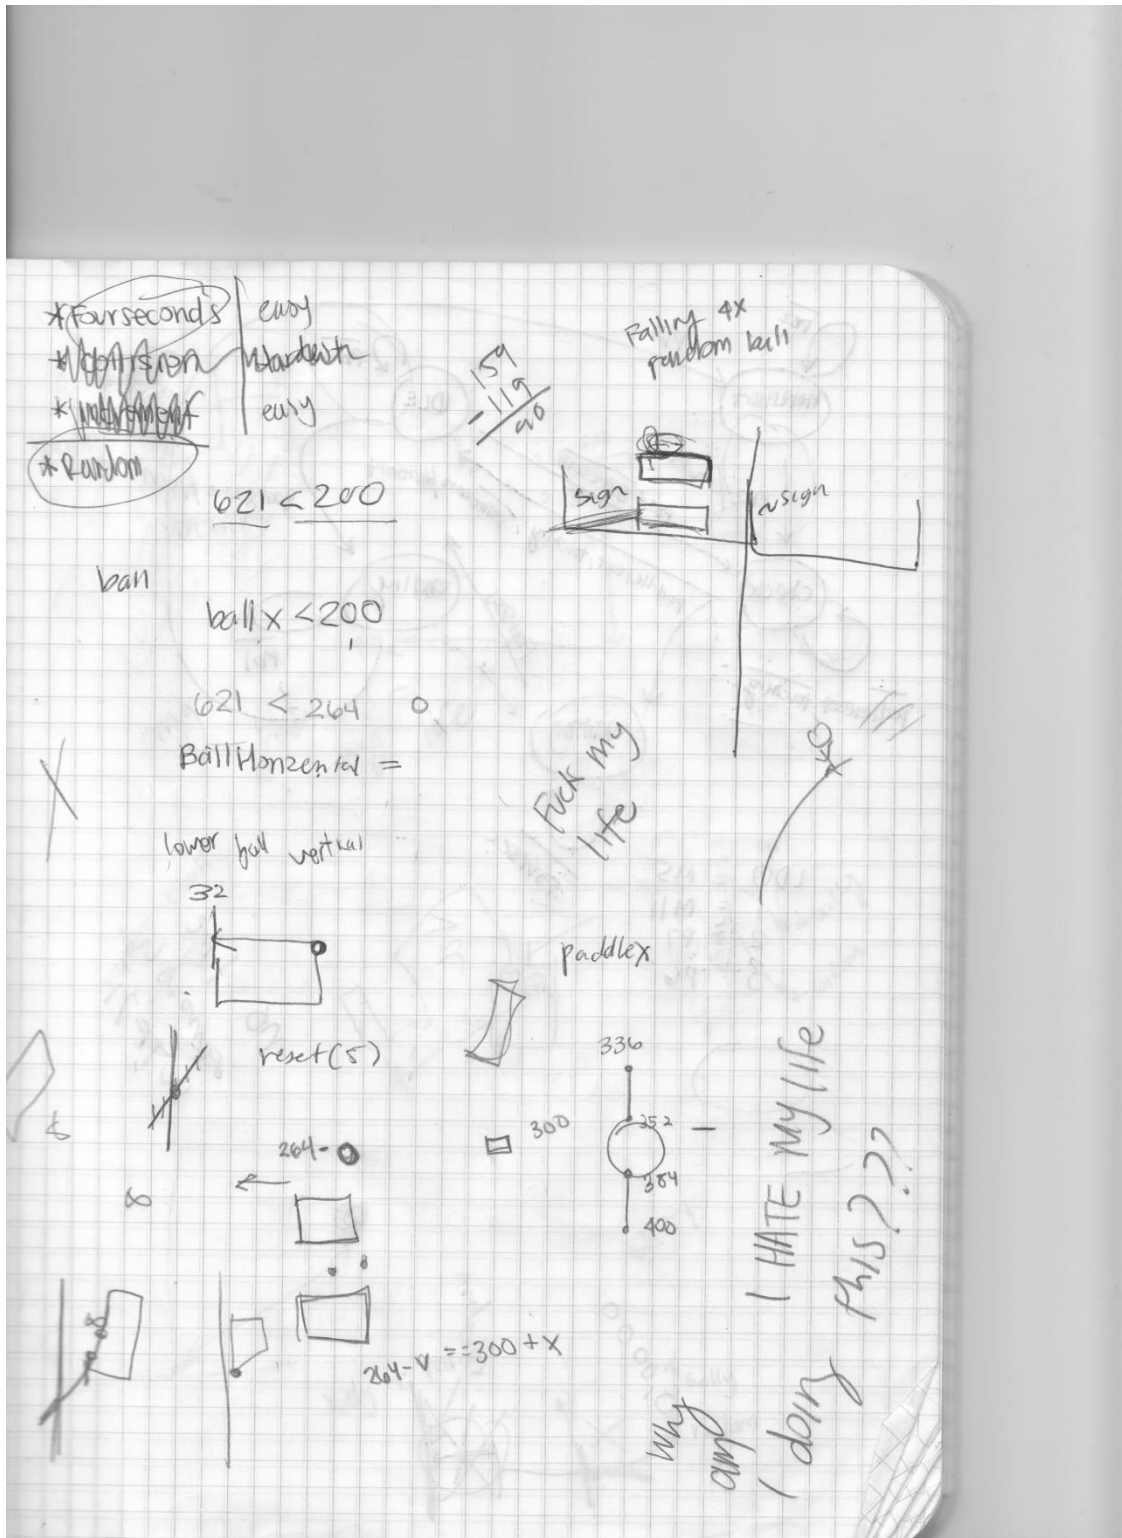 *Fourseconds | easy
*
* | easy
*Random
159
-119
40
Falling 4x
random ball
621 < 200
sign
~sign
ball
ball x < 200
621 < 264 0
Ball Horizental =
Fuck My
life
lower ball vertical
32
paddlex
reset(5)
336
300
352
264-
384
400
8
8
264-V ==300+X
I HATE My life
Why
am
I doing
this???